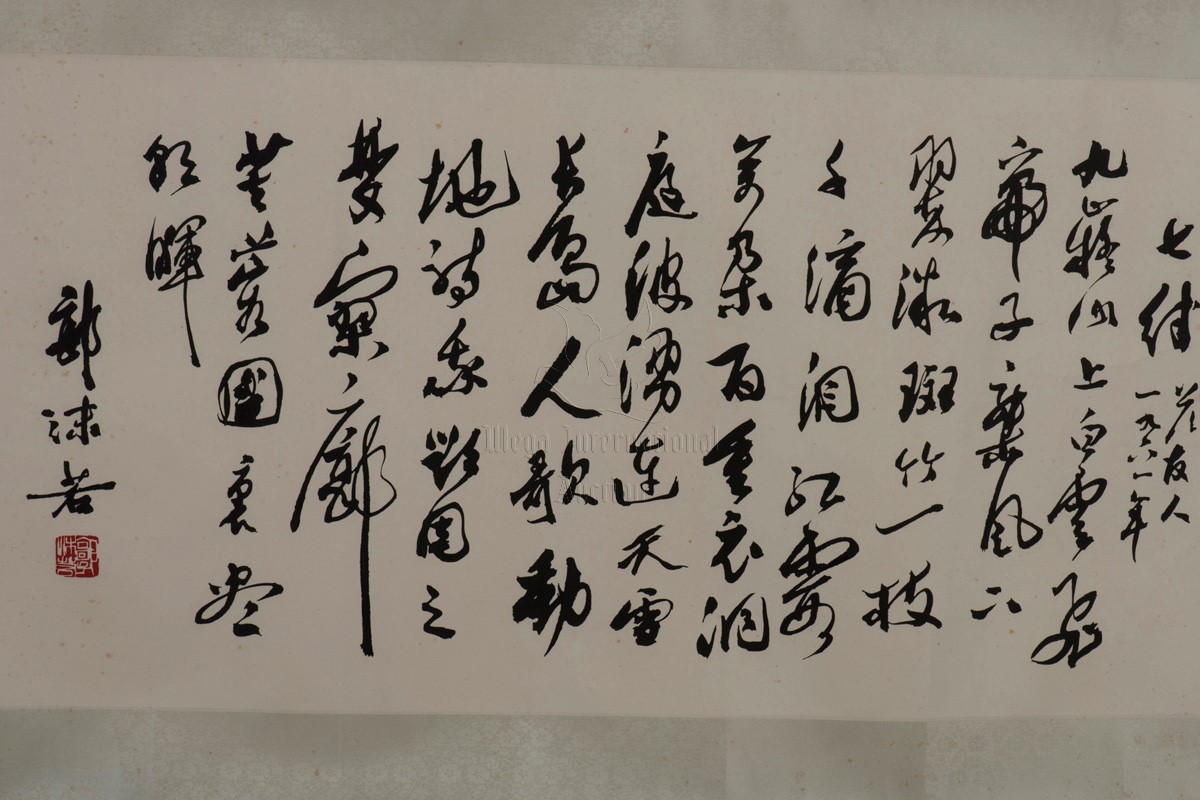 七律
答友人
一九六一年
九嶷山上白雲飛
帝子乘風下
翠微斑竹一枝
千滴泪紅霞
萬朵百重衣洞
庭波湧連天雪
長島人歌動
地詩我欲因之
夢寥廓
芙蓉國裏盡
朝暉
郭沫若
郭沫若
Wega International
Auction